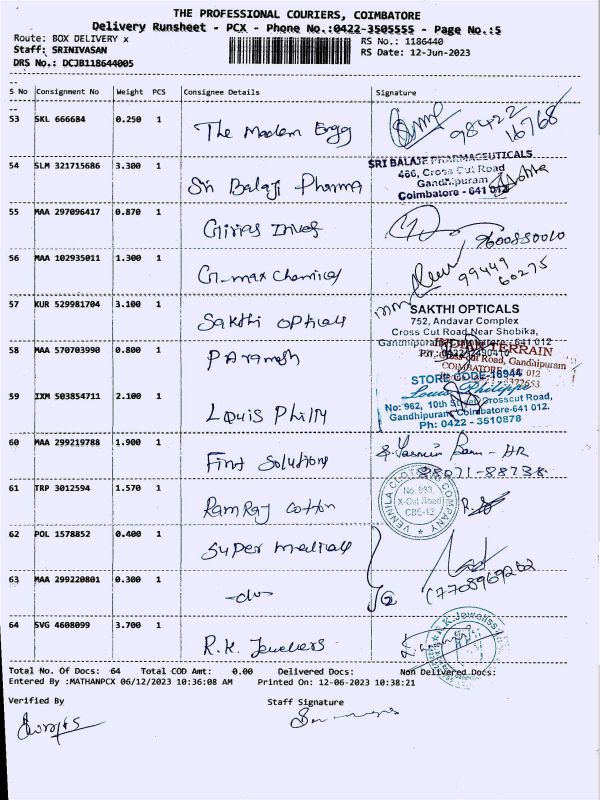 THE PROFESSIONAL COURIERS, COIMBATORE
Delivery Runsheet - PCX - Phone No.:0422-3505555 - Page No.:5
Route: BOX DELIVERY x
RS No.: 1186440
Staff: SRINIVASAN
RS Date: 12-Jun-2023
DRS No.: DCJB118644005
S No Consignment No Weight PCS Consignee Details Signature
53 SKL 666684 0.250 1 The Madern Engg 98422
16768
54 SLM 321715686 3.300 1 Sri Balaji Pharma
SRI BALAJE PHARMACEUTICALS
466, Cross Cut Road
Gandhipuram
Coimbatore - 641 012
55 MAA 297096417 0.870 1 Girias Inves 9600850010
56 MAA 102935011 1.300 1 G-max Chemical 99449
60275
57 KUR 529981704 3.100 1 Sakthi opticals
SAKTHI OPTICALS
752, Andavar Complex
Cross Cut Road Near Shobika,
Gandhipuram, Coimbatore - 641 012
58 MAA 570703990 0.800 1 Paramesh
TERRAIN
Cross Cut Road, Gandhipuram
COIMBATORE - 641 012
59 IXM 503854711 2.100 1 Louis Philly
STORE CODE-16944
Louis Philippe
No: 962, 10th Street, Crosscut Road,
Gandhipuram, Coimbatore-641 012.
Ph: 0422 - 3510878
60 MAA 299219788 1.900 1 First Solutions S. Yasmin Banu - HR
88071-88738
61 TRP 3012594 1.570 1 Ramraj Cotton
VENNILA CLOTHING COMPANY
No. 933,
X-Cut Road
CBE-12
62 POL 1578852 0.400 1 Super medicals
63 MAA 299220801 0.300 1 -do- (7708969202
64 SVG 4608099 3.700 1 R.K. Jewellers
Total No. Of Docs: 64 Total COD Amt: 0.00 Delivered Docs: Non Delivered Docs:
Entered By :MATHANPCX 06/12/2023 10:36:08 AM Printed On: 12-06-2023 10:38:21
Verified By Staff Signature